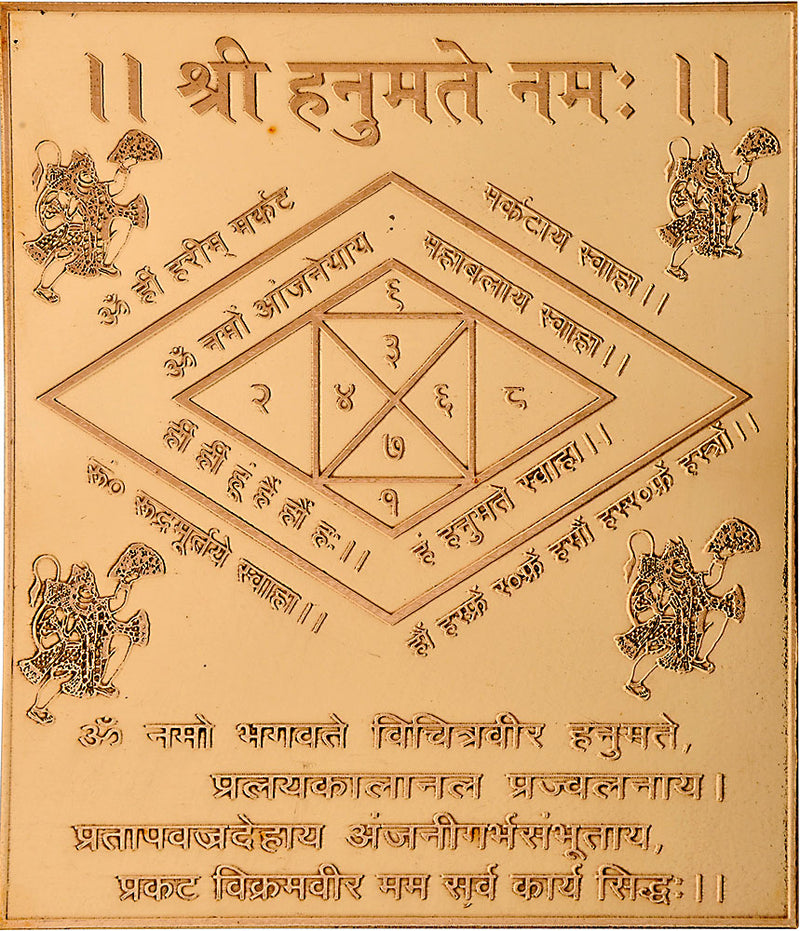 ।। श्री हनुमते नमः ।।
ॐ ह्रीं हरीम् मर्कट
मर्कटाय स्वाहा।।
ॐ नमों आंजनेयाय
महाबलाय स्वाहा।।
६
३
२
४
६
८
७
१
ह्रीं ह्रीं हूं हैं ह्रौं हः।।
हं हनुमते स्वाहा।।
रूं० रूद्रमूर्तये स्वाहा।।
ॐ नमो भगवते विचित्रवीर हनुमते,
प्रलयकालानल प्रज्वलनाय।
प्रतापवज्रदेहाय अंजनीगर्भसंभूताय,
प्रकट विक्रमवीर मम सर्व कार्य सिद्धः।।